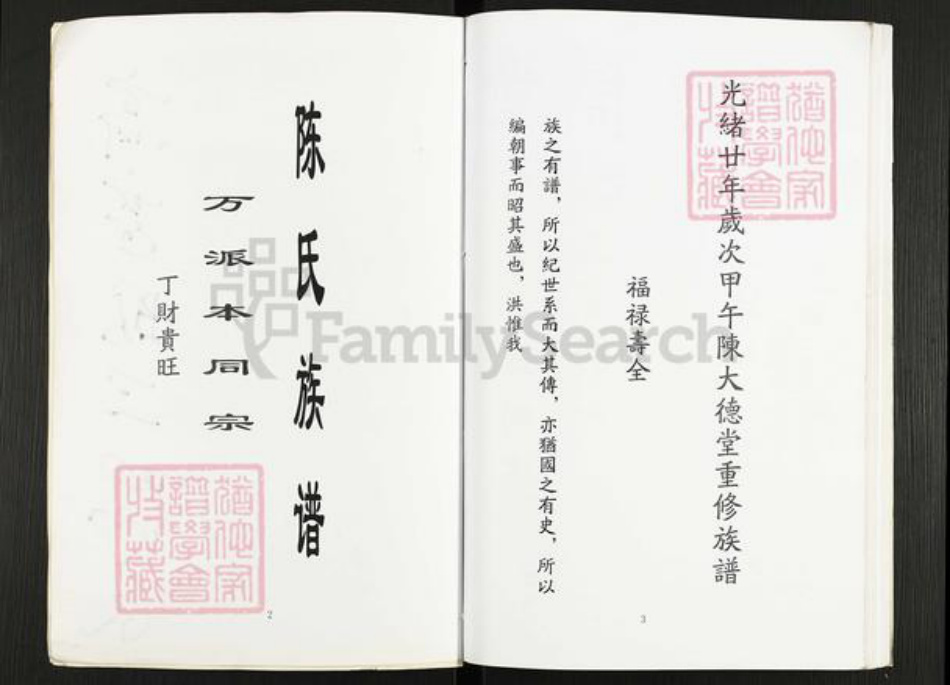 陈氏族谱
万派本同宗
丁財貴旺
猶他家
譜學會
特藏
2
光緒廿年歲次甲午陳大德堂重修族譜
福禄壽全
族之有譜，所以紀世系而大其傳，亦猶國之有史，所以
編朝事而昭其盛也，洪惟我
猶他家
譜學會
特藏
3
FamilySearch